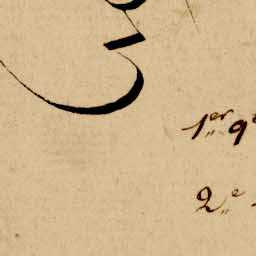 1er 9
2e